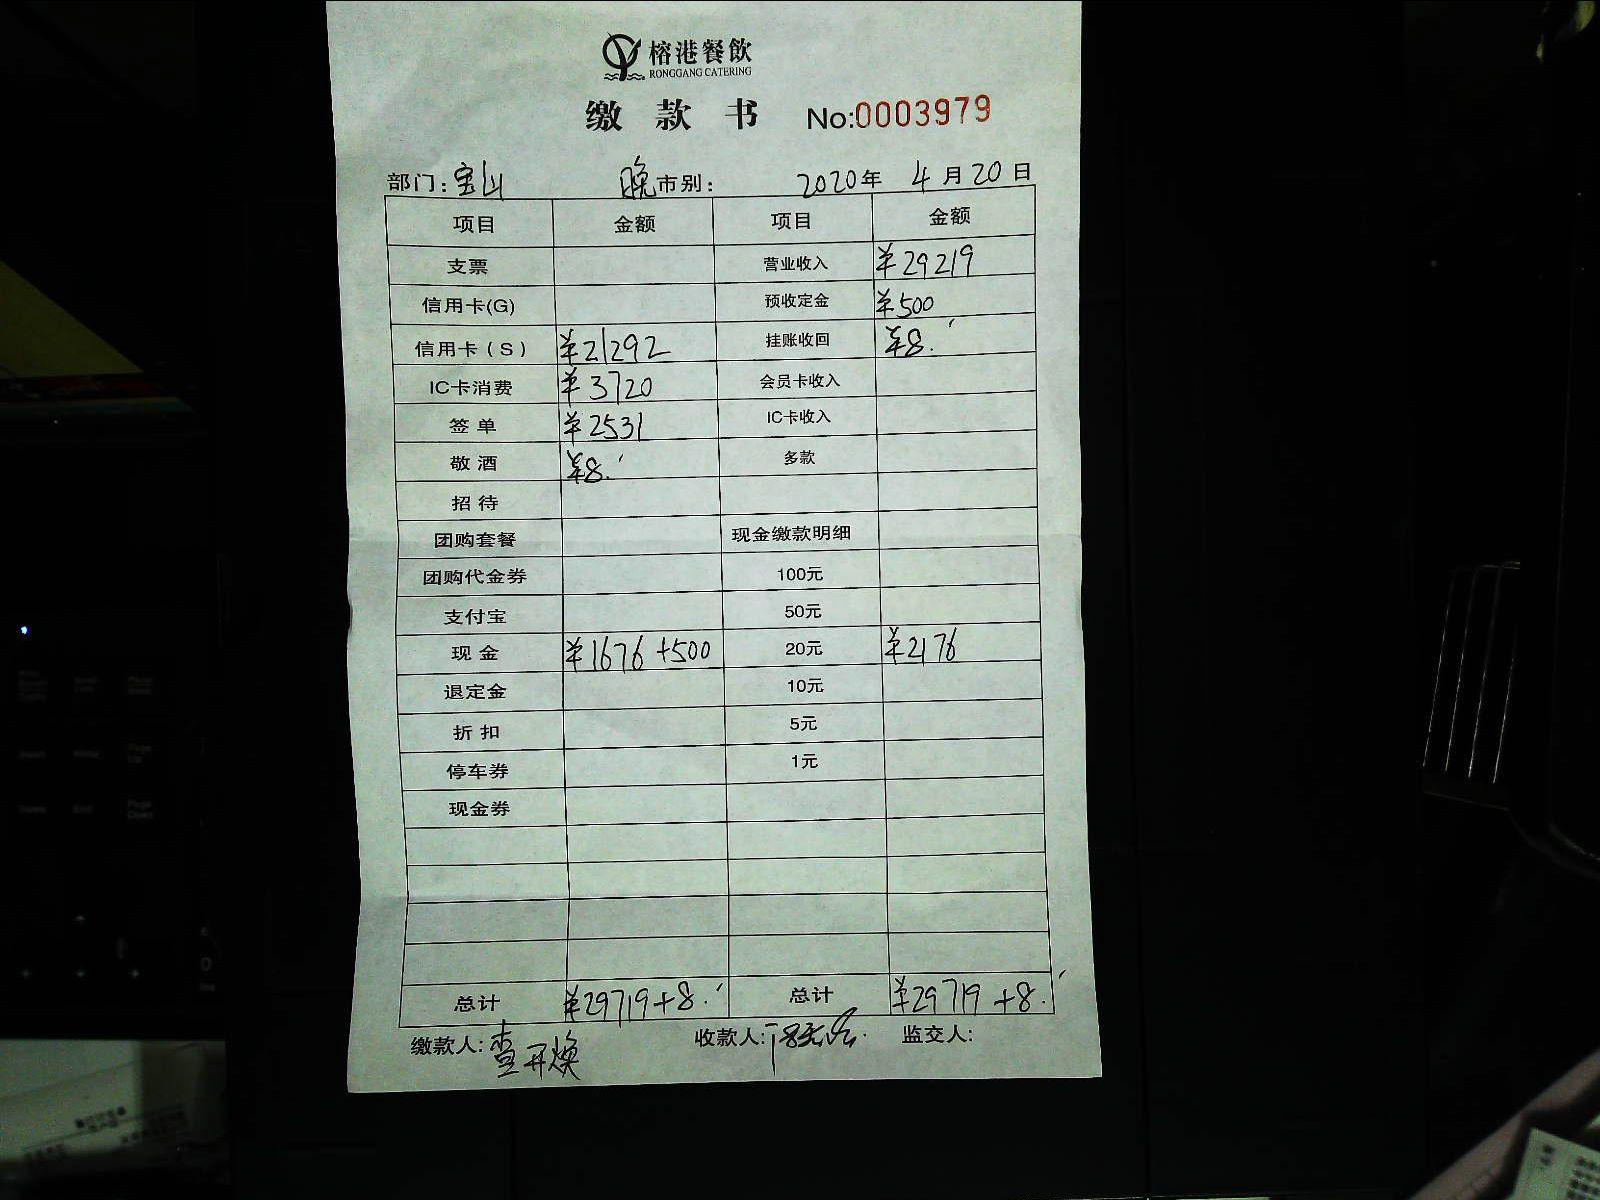 榕港餐飲
RONGGANG CATERING
缴款书 No:0003979
部门:宝山 晚市别: 2020年 4月20日
项目 金额 项目 金额
支票 营业收入 ¥29219
信用卡(G) 预收定金 ¥500
信用卡(S) ¥21292 挂账收回 ¥8.
IC卡消费 ¥3720 会员卡收入
签单 ¥2531 IC卡收入
敬酒 ¥8. 多款
招待
团购套餐 现金缴款明细
团购代金券 100元
支付宝 50元
现金 ¥1676+500 20元 ¥2176
退定金 10元
折扣 5元
停车券 1元
现金券
总计 ¥29719+8. 总计 ¥29719+8.
缴款人: 收款人: 监交人: